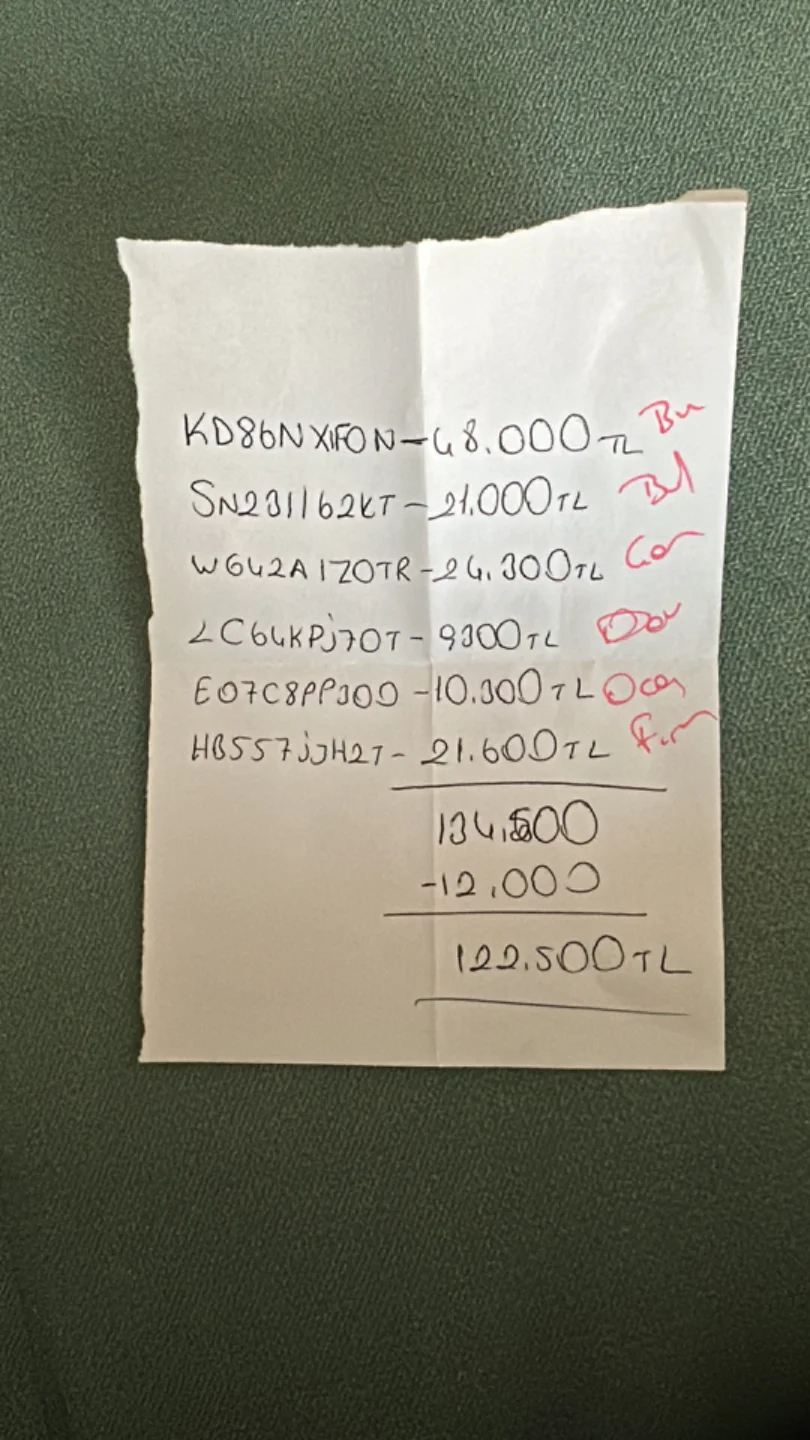 KD86NXIFON-48.000 TL Bu
SN231162KT-21.000 TL
W642A1ZOTR-24.300 TL
LC64KPJ70T-9300 TL
E07C8PPJ00-10.300 TL
HB557JJH2T-21.600 TL
134,500
-12.000
122.500 TL